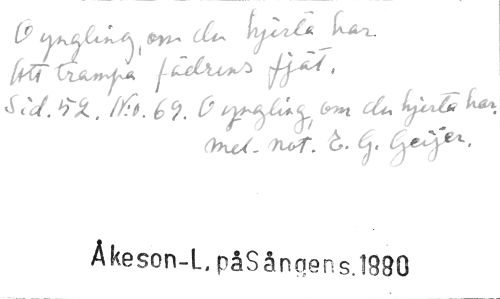 O yngling, om du hjerta har
Att trampa fädrens fjät.
Sid. 52. No. 69. O yngling, om du hjerta har.
mel. not. E. G. Geijer.
Åkeson-L. på Sångens. 1880